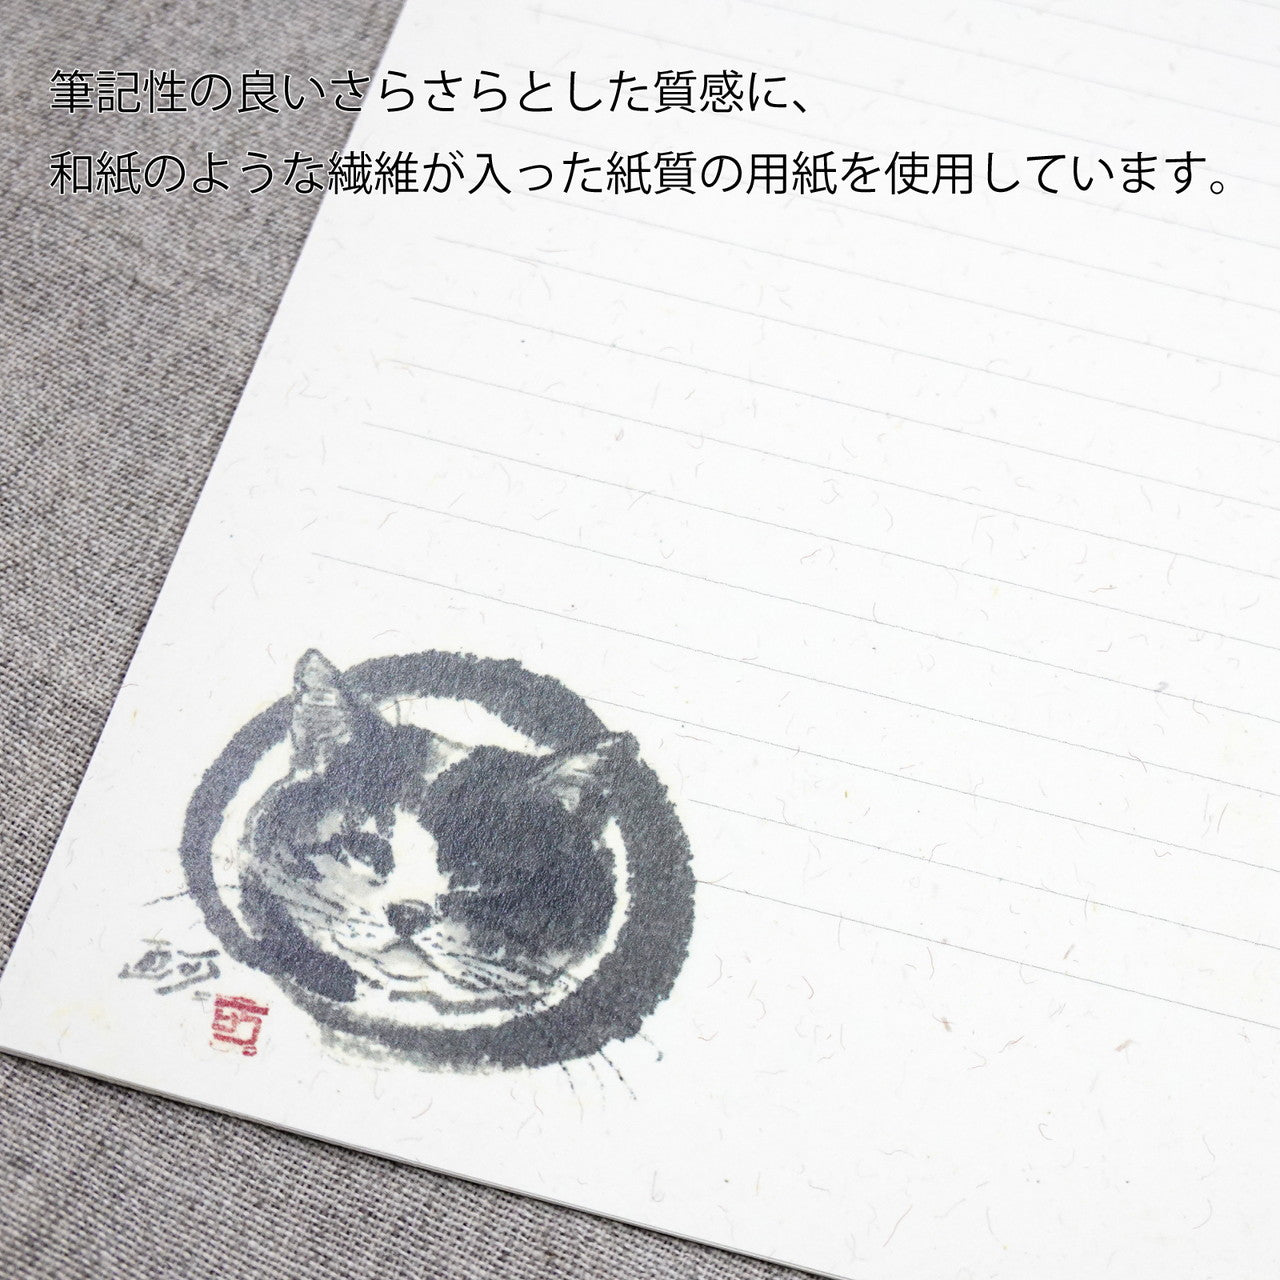 筆記性の良いさらさらとした質感に、
和紙のような繊維が入った紙質の用紙を使用しています。